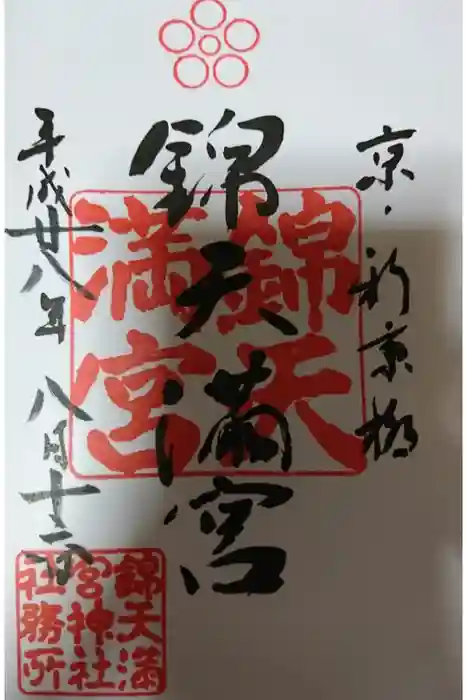 京・新京極
錦天満宮
平成廿八年八月十二日
錦天
満宮
錦天満
宮神社
社務所